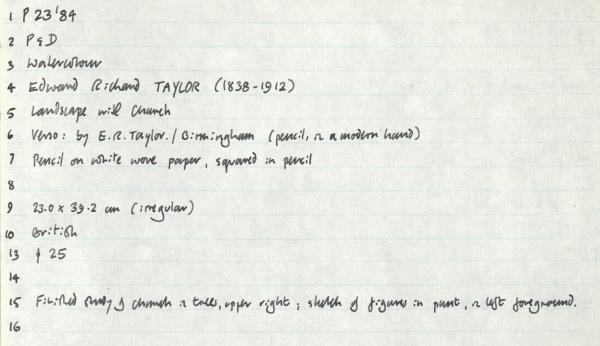 1 P 23'84
2 P&D
3 Watercolour
4 Edward Richard TAYLOR (1838-1912)
5 Landscape with Church
6 Verso: by E.R. Taylor. / Birmingham (pencil, in a modern hand)
7 Pencil on white wove paper, squared in pencil
8
9 23.0 x 39.2 cm (irregular)
10 British
13 25
14
15 Finished study of church in trees, upper right; sketch of figures in punt, in left foreground.
16